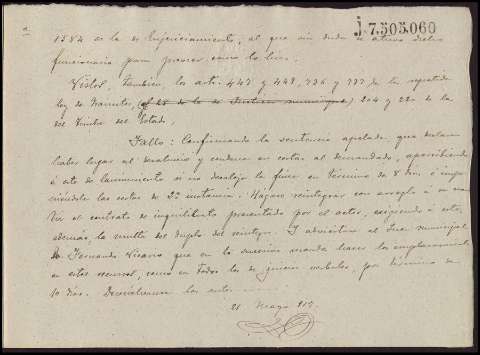 J 7.505.060
1582 de la de Enjuiciamiento, al que sin duda se atuvo dicho
funcionario para proveer como lo hizo.
Vistos, tambien, los arts. 447 y 448, 736 y 777 de la repetida
ley de trámites, 204 y 220 de la
del Timbre del Estado,
Fallo: Confirmando la sentencia apelada, que declara
haber lugar al desahucio y condena en costas al demandado, apercibiendo
á este de lanzamiento si no desaloja la finca en término de 8 dias, é impo
niéndole las costas de 2ª instancia. Hágase reintegrar con arreglo á
el contrato de inquilinato presentado por el actor, exigiendo á este,
además, la multa del duplo del reintegro. Y adviértase al Juez municipal
Fernando que en lo sucesivo manda hacer los emplazamientos
en estos recursos, como en todos los de juicios verbales, por término de
10 dias. Devuélvanse los autos
21 Mayo 912.